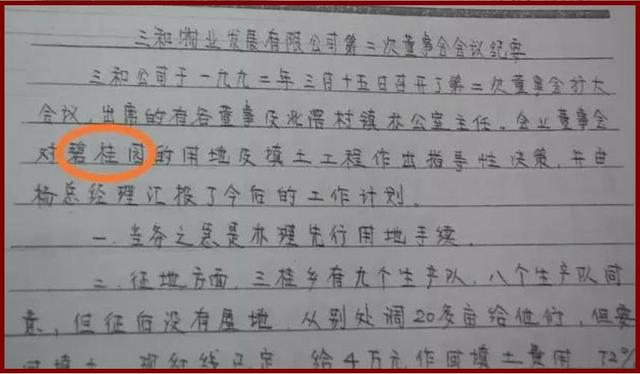 三和物业发展有限公司第二次董事会会议纪要
三和公司于一九九二年三月十五日召开了第二次董事会扩大
会议，出席的有各董事及北滘村镇办公室主任。会上董事会
对碧桂园的用地及填土工程作出指导性决策，并由
杨总经理汇报了今后的工作计划。
一.当务之急是办理先行用地手续。
二.征地方面，三桂乡有九个生产队，八个生产队同
意，但征后没有屋地，从别处调20多亩给他们，但要
填土，现红线已定，给4万元作回填土费用，72%